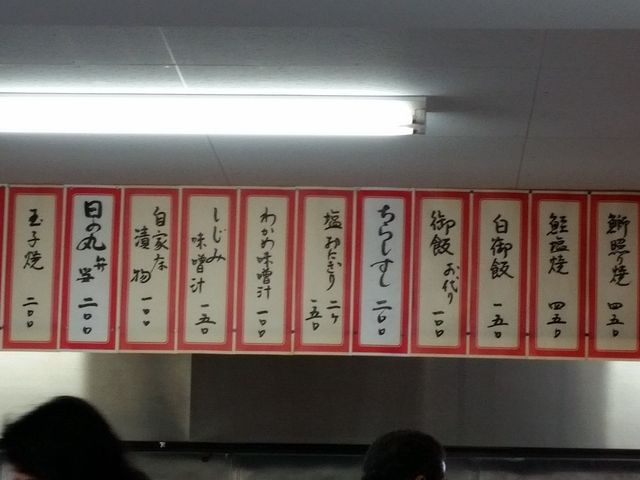 鰤照り焼 四五〇
鮭塩焼 四五〇
白御飯 一五〇
御飯 お代り 一〇〇
ちらしすし 二〇〇
塩おにぎり 二ケ 一五〇
わかめ味噌汁 一〇〇
しじみ
味噌汁 一五〇
自家製
漬物 一〇〇
日の丸弁当 二〇〇
玉子焼 二〇〇